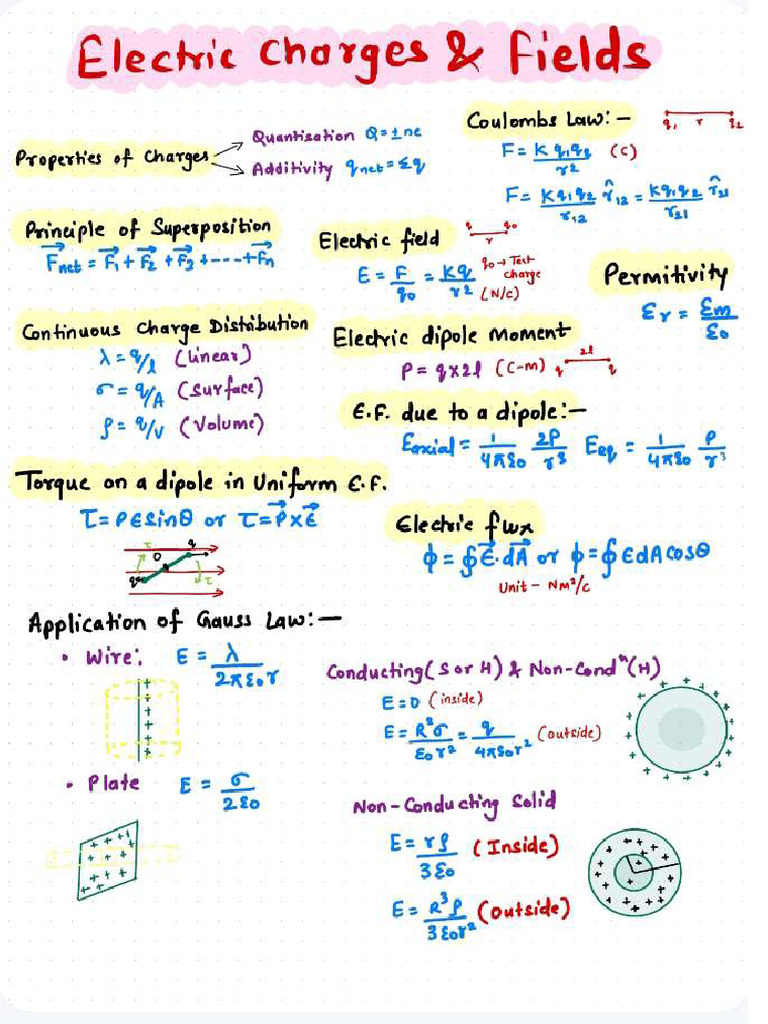 Electric Charges & Fields
Properties of Charges
Quantisation Q=±ne
Additivity qnet=Σq
Coulombs Law:-
q1 r q2
F = K q1q2 / r² (C)
F = Kq1q2 / r12 r̂12 = Kq1q2 / r21 r̂21
Principle of Superposition
F⃗net = F⃗1 + F⃗2 + F⃗3 +---+F⃗n
Electric field
q q0
r
E = F/q0 = Kq/r²
q0 → Test charge
(N/C)
Permitivity
εr = εm/ε0
Continuous Charge Distribution
λ = q/l (Linear)
σ = q/A (Surface)
ρ = q/V (Volume)
Electric dipole moment
P = q×2l (C-m)
2l
q q
E.F. due to a dipole:-
Eaxial = 1/4πε0 2P/r³ Eeq = 1/4πε0 P/r³
Torque on a dipole in Uniform E.F.
τ = PEsinθ or τ = P⃗×E⃗
τ O q
q τ
Electric flux
ϕ = ∮E⃗.dA⃗ or ϕ = ∮EdAcosθ
Unit - Nm²/C
Application of Gauss Law:-
• Wire: E = λ / 2πε0r
Conducting(S or H) & Non-Condⁿ(H)
E = 0 (inside)
E = R²σ / ε0r² = q / 4πε0r² (outside)
• Plate E = σ / 2ε0
Non-Conducting Solid
E = rρ / 3ε0 (Inside)
E = R³ρ / 3ε0r² (outside)